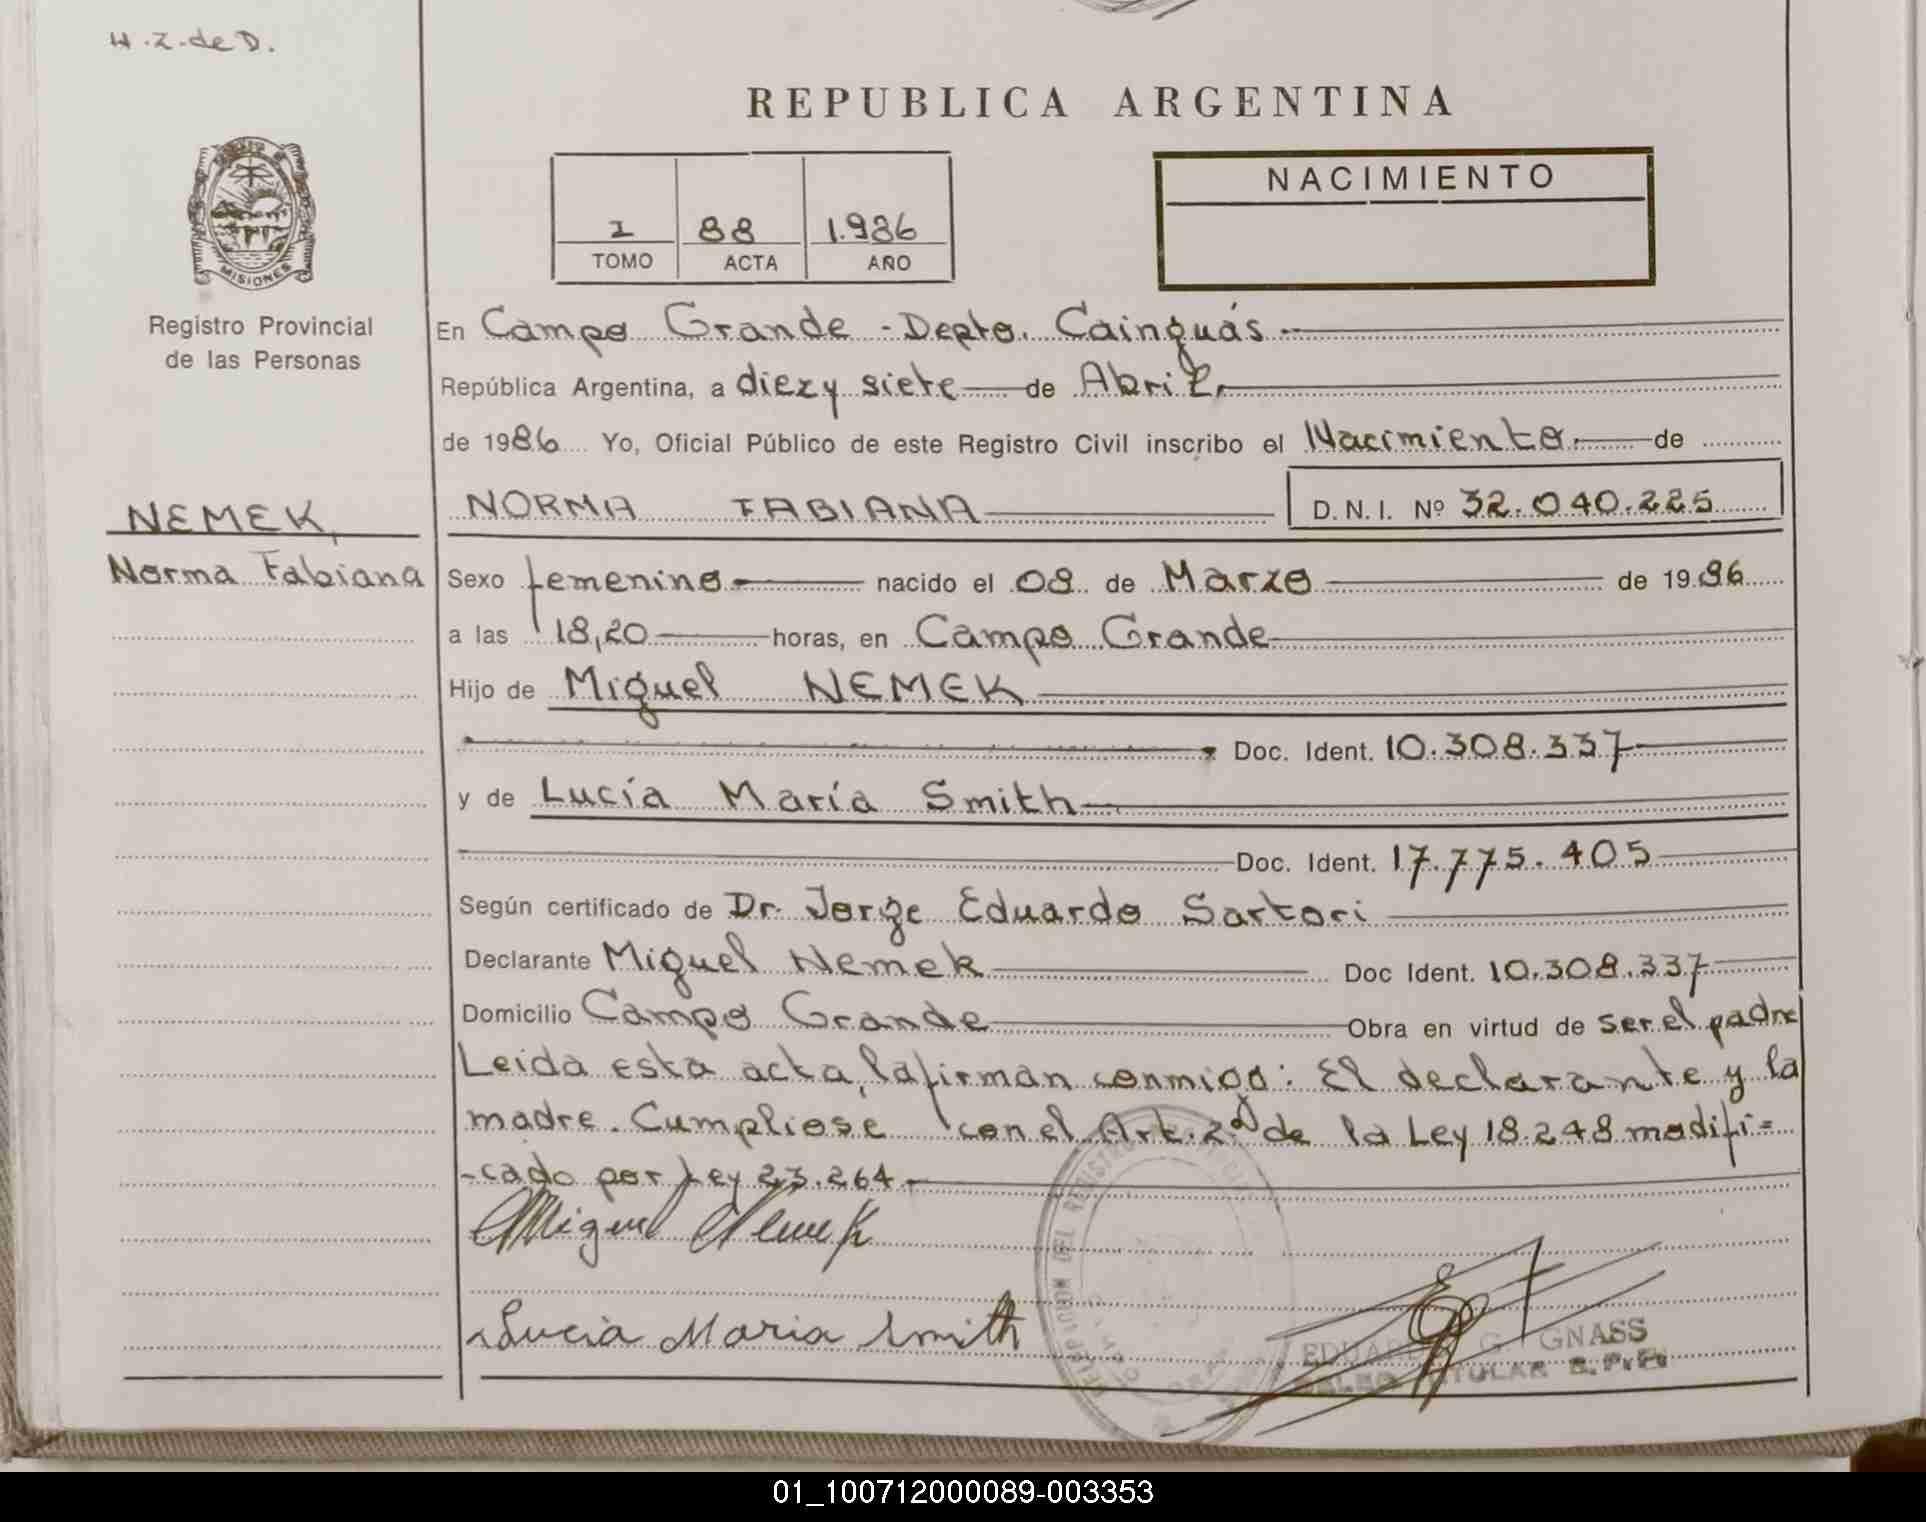 H.Z.de D.
REPUBLICA ARGENTINA
NACIMIENTO
I 88 1.986
TOMO ACTA AÑO
MISIONES
Registro Provincial
de las Personas
En Campo Grande - Depto. Cainguás.-
República Argentina, a diez y siete de Abril,
de 1986 Yo, Oficial Público de este Registro Civil inscribo el Nacimiento de
NEMEK,
Norma Fabiana
NORMA FABIANA D.N.I. Nº 32.040.225
Sexo femenino nacido el 08 de Marzo de 1986
a las 18,20 horas, en Campo Grande
Hijo de Miguel NEMEK
Doc. Ident. 10.308.337
y de Lucía María Smith
Doc. Ident. 17.775.405
Según certificado de Dr. Jorge Eduardo Sartori
Declarante Miguel Nemek Doc Ident. 10.308.337
Domicilio Campo Grande Obra en virtud de ser el padre
Leida esta acta, la firman conmigo: El declarante y la
madre. Cumpliose con el Art. 2º de la Ley 18.248 modifi=
-cado por Ley 23.264.
Miguel Nemek
Lucia Maria Smith
DEL REGISTRO
EDUARDO G. GNASS
TITULAR R.P.P.
01_100712000089-003353